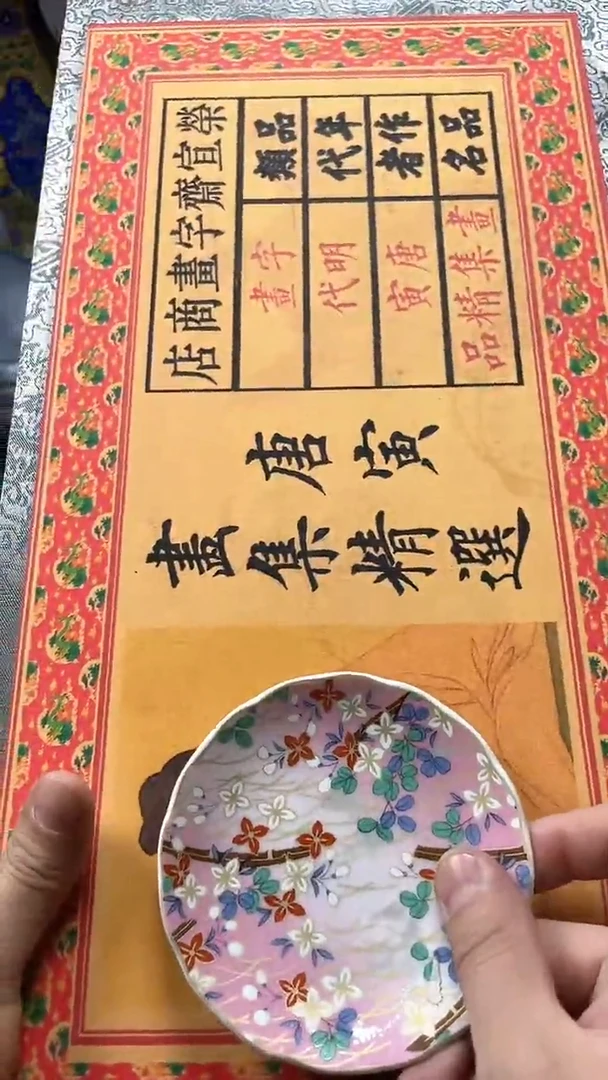 榮宣齋字畫商店
品類 字畫
年代 明代
作者 唐寅
品名 畫集精品
唐寅
畫集精選